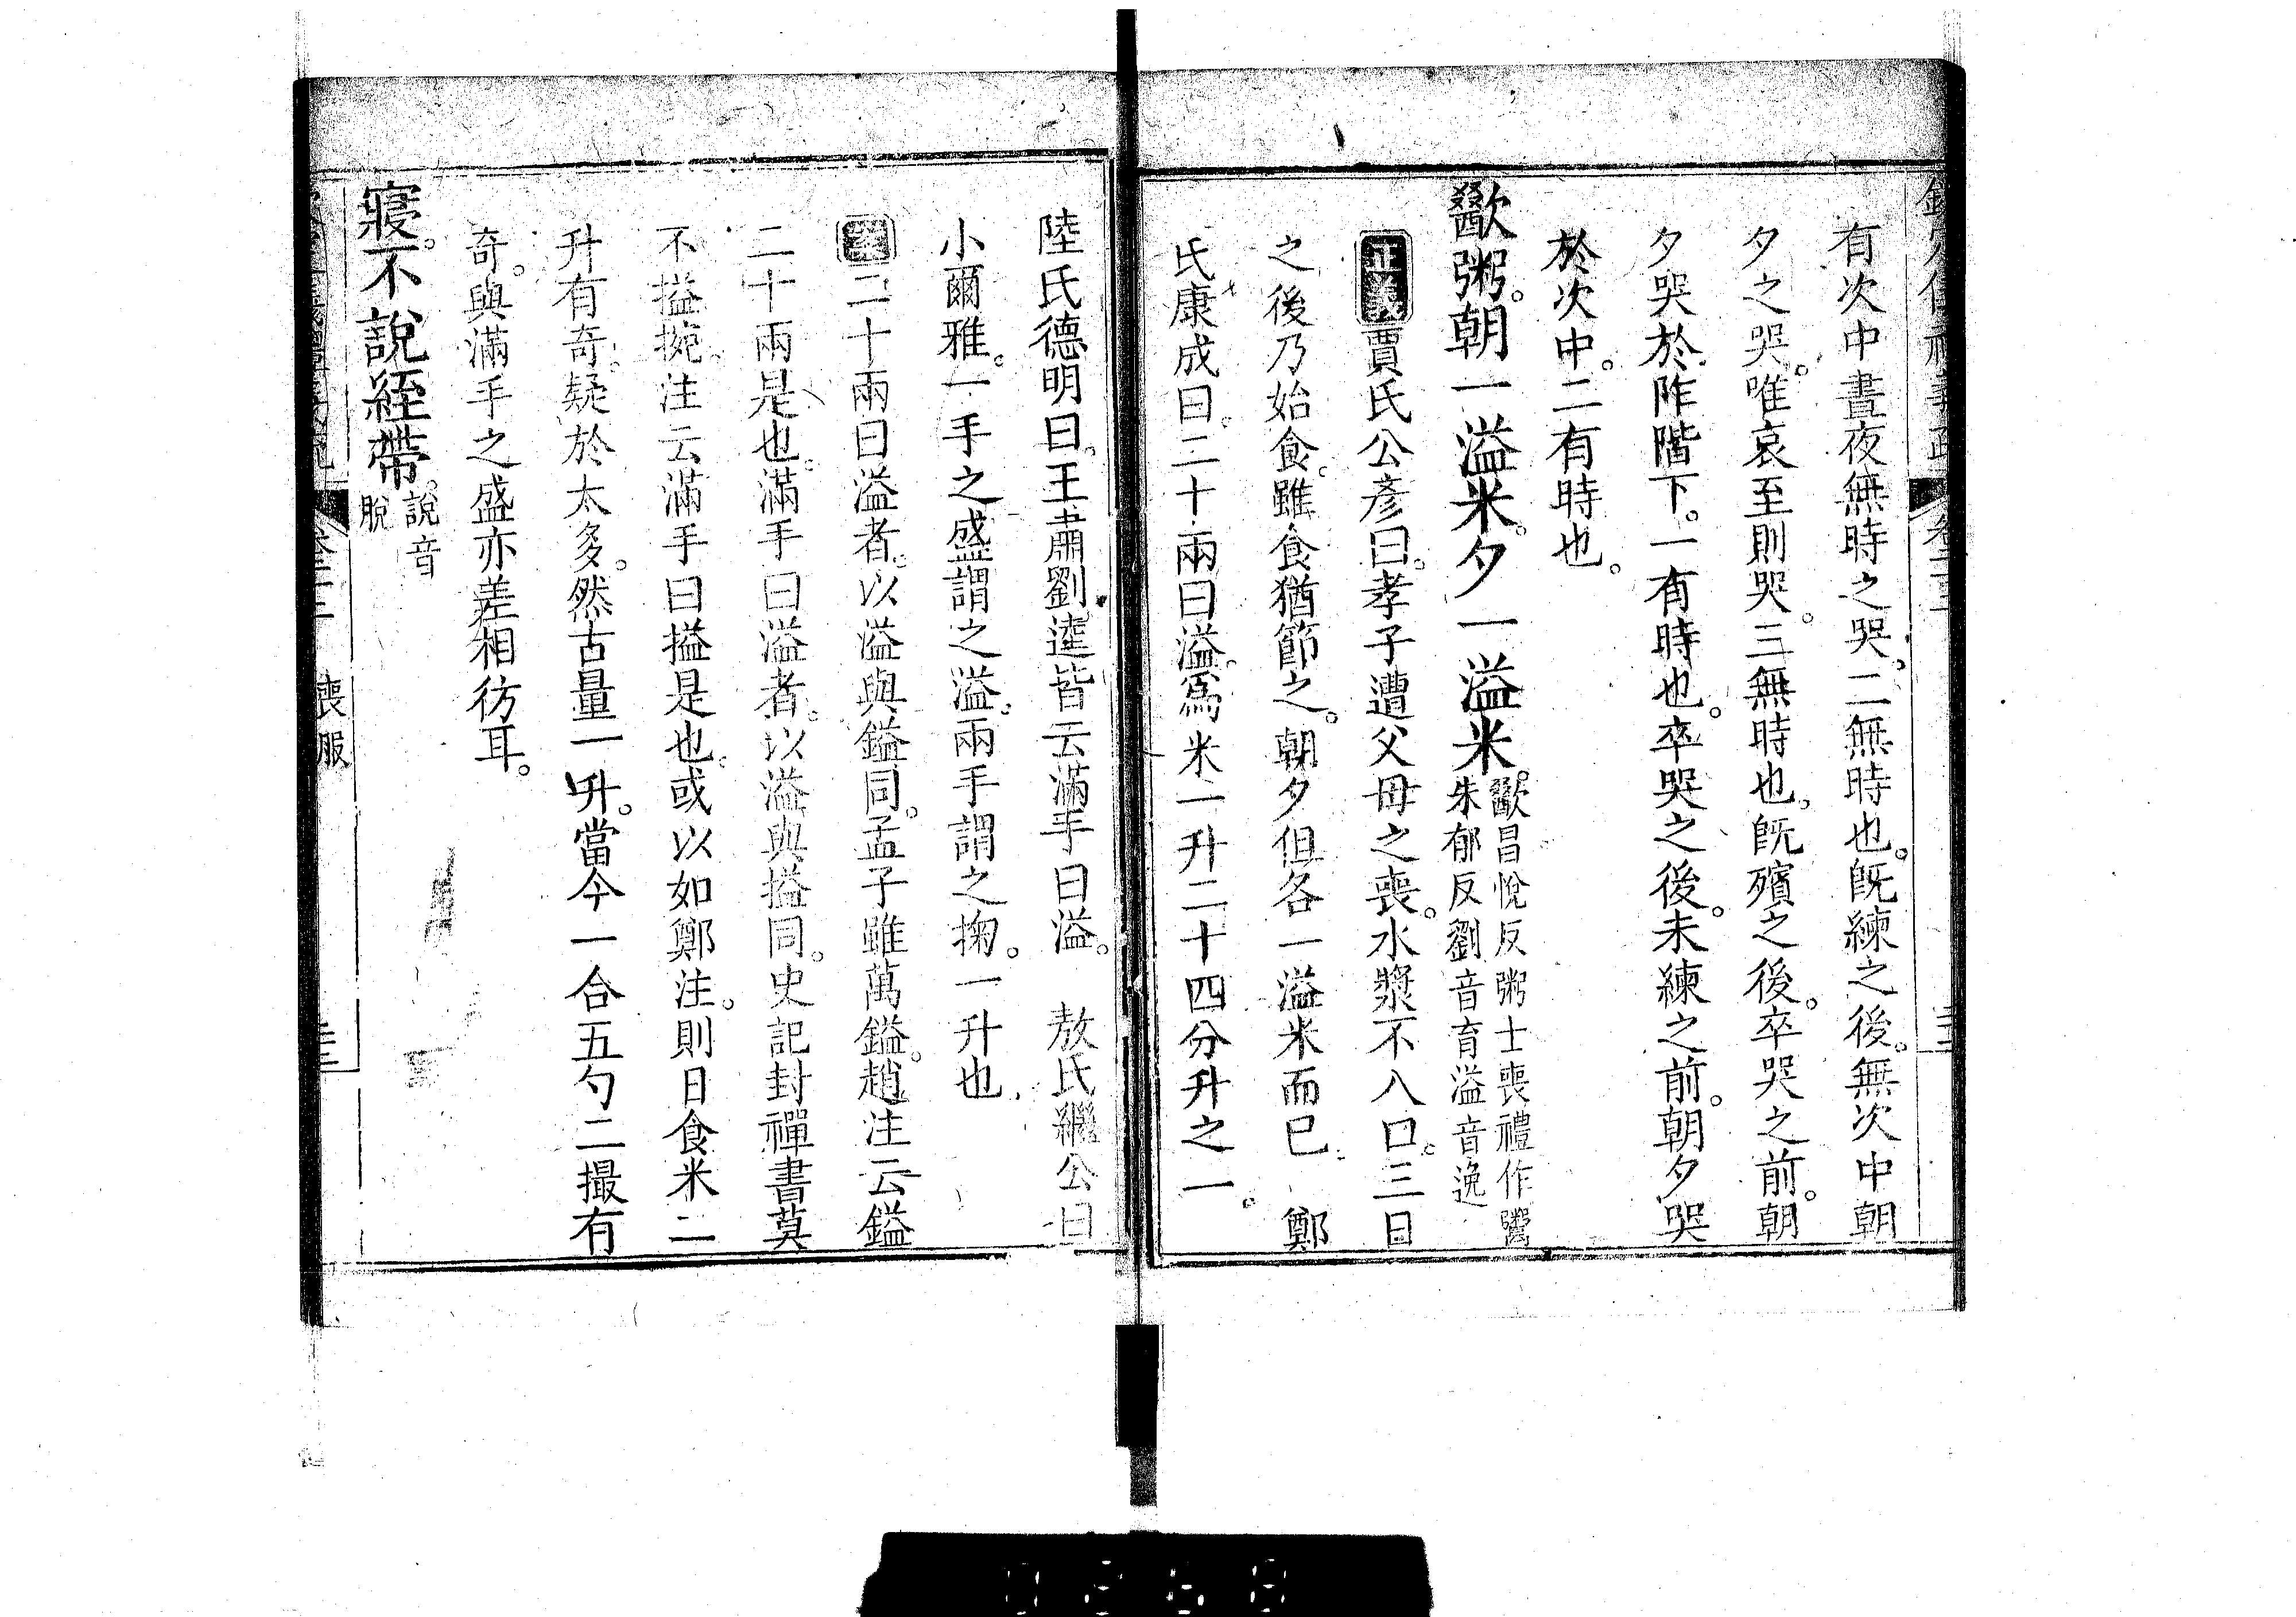 有次中晝夜無時之哭。二無時也。旣練之後。無次中朝
夕之哭。唯哀至則哭。三無時也。旣殯之後。卒哭之前。朝
夕哭於阼階下。一有時也。卒哭之後。未練之前。朝夕哭
於次中。二有時也。
歠粥。朝一溢米。夕一溢米。
歠昌悅反粥士喪禮作鬻
朱郁反劉音育溢音逸
正義賈氏公彥曰。孝子遭父母之喪。水漿不入口。三日
之後乃始食。雖食猶節之。朝夕但各一溢米而已 鄭
氏康成曰。二十兩曰溢。爲米一升二十四分升之一。
陸氏德明曰。王肅劉逵皆云滿手曰溢。 敖氏繼公曰
小爾雅。一手之盛謂之溢。兩手謂之掬。一升也
案二十兩曰溢者。以溢與鎰同。孟子雖萬鎰。趙注云鎰
二十兩是也。滿手曰溢者。以溢與搤同。史記封禪書莫
不搤捥。注云滿手曰搤是也。或以如鄭注。則日食米二
升有奇。疑於太多。然古量一升。當今一合五勺二撮有
奇。與滿手之盛亦差相彷耳。
寢。不說絰帶。
說音
脫
喪服